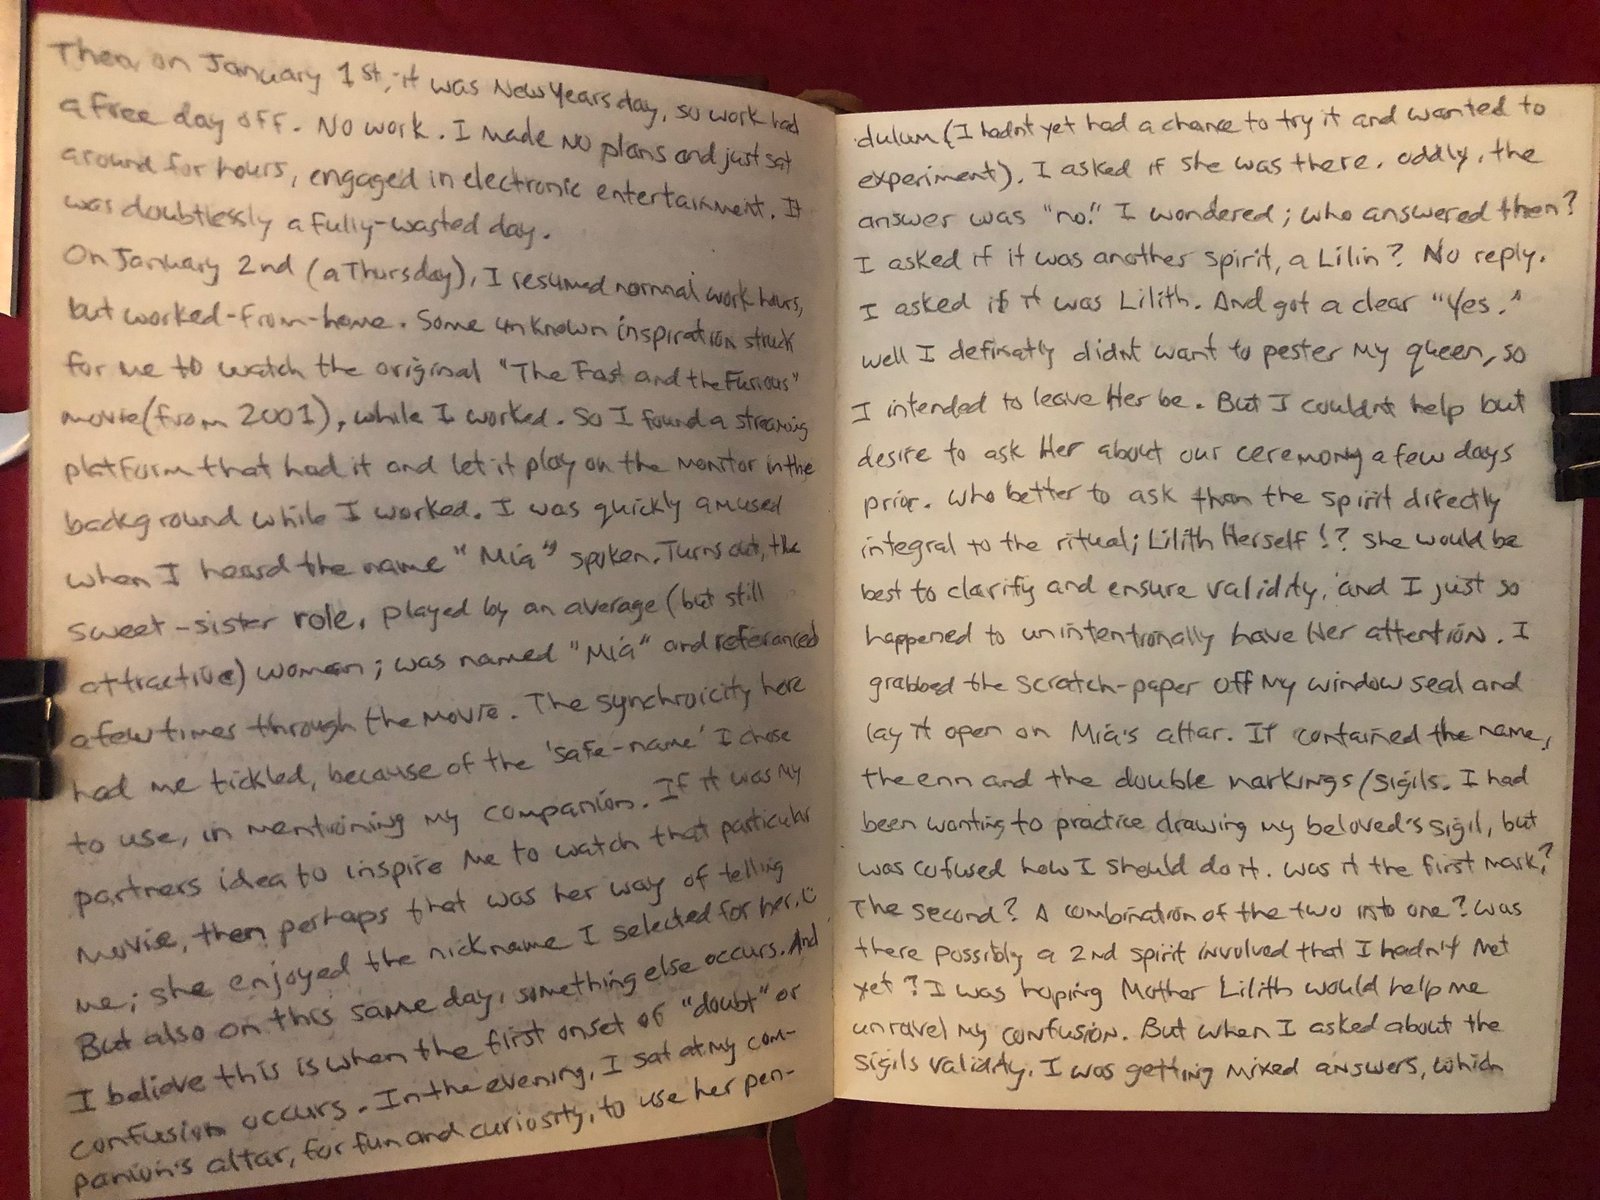 Then on January 1st, it was New Years day, so work had
a free day off. No work. I made no plans and just sat
around for hours, engaged in electronic entertainment. It
was doubtlessly a fully-wasted day.
On January 2nd (a Thursday), I resumed normal work hours,
but worked-from-home. Some unknown inspiration struck
for me to watch the original "The Fast and the Furious"
movie (from 2001), while I worked. So I found a streaming
platform that had it and let it play on the monitor in the
background while I worked. I was quickly amused
when I heard the name "Mia" spoken. Turns out, the
sweet-sister role, played by an average (but still
attractive) woman; was named "Mia" and referanced
a few times through the movie. The synchroicity here
had me tickled, because of the 'safe-name' I chose
to use, in mentioning my companion. If it was my
partners idea to inspire me to watch that particular
movie, then perhaps that was her way of telling
me; she enjoyed the nickname I selected for her.
But also on this same day, something else occurs. And
I believe this is when the first onset of "doubt" or
confusion occurs. In the evening, I sat at my com-
panion's altar, for fun and curiosity, to use her pen-
dulum (I hadnt yet had a chance to try it and wanted to
experiment). I asked if she was there. oddly, the
answer was "no." I wondered; who answered then?
I asked if it was another spirit, a Lilin? No reply.
I asked if it was Lilith. And got a clear "Yes."
well I definatly didnt want to pester my queen, so
I intended to leave Her be. But I couldnt help but
desire to ask Her about our ceremony a few days
prior. who better to ask than the spirit directly
integral to the ritual; Lilith Herself!? she would be
best to clarify and ensure validity, and I just so
happened to unintentionally have Her attention. I
grabbed the scratch-paper off my window seal and
lay it open on Mia's altar. It contained the name,
the enn and the double markings/sigils. I had
been wanting to practice drawing my beloved's sigil, but
was cofused how I should do it. was it the first mark?
The second? A combination of the two into one? was
there possibly a 2nd spirit involved that I hadn't met
yet? I was hoping Mother Lilith would help me
unravel my confusion. But when I asked about the
sigils validity, I was getting mixed answers, which